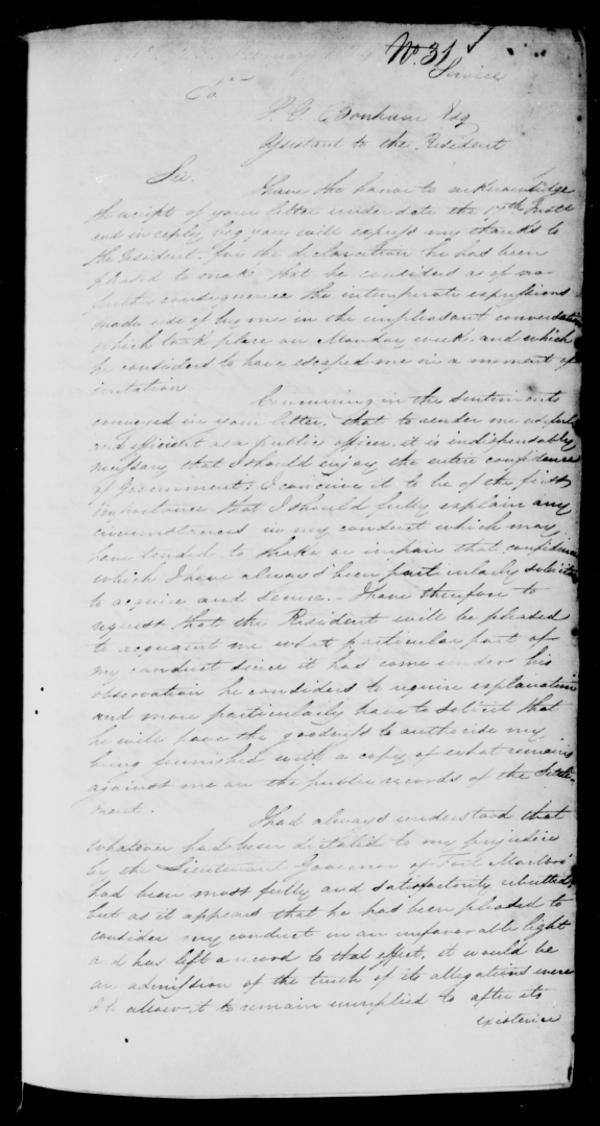 No. 31
Service
To
S. G. Bonham Esq
Assistant to the Resident
Sir.
I have the honor to acknowledge
the receipt of your letter under date the 17th Inst
and in reply beg you will express my thanks to
the Resident, for the declaration he has been
pleased to make that he considers as of no
further consequence the intemperate expressions
made use of by me in the unpleasant conversation
which took place on Monday week, and which
he considers to have escaped me in a moment of
irritation
Concurring in the sentiments
conveyed in your letter, that to render me useful
and efficient as a public officer, it is indispensably
necessary that I should enjoy the entire confidence
of Government, I conceive it to be of the first
importance that I should fully explain any
circumstances in my conduct which may
have tended to shake or impair that confidence
which I have always been particularly solicitous
to acquire and secure. - I have therefore to
request that the Resident will be pleased
to acquaint me what particular part of
my conduct since it has come under his
observation he considers to require explanation
and more particularly have to solicit that
he will have the goodness to authorise my
being furnished with a copy of what remains
against me on the public records of the Settle-
ment.
I had always understood that
whatever had been dictated to my prejudice
by the Lieutenant Governor of Fort Marlbro'
had been most fully and satisfactorily rebutted,
but as it appears that he had been pleased to
consider my conduct in an unfavorable light
and has left a record to that effect, it would be
an admission of the truth of its allegations were
I to allow it to remain unreplied to after its
existence